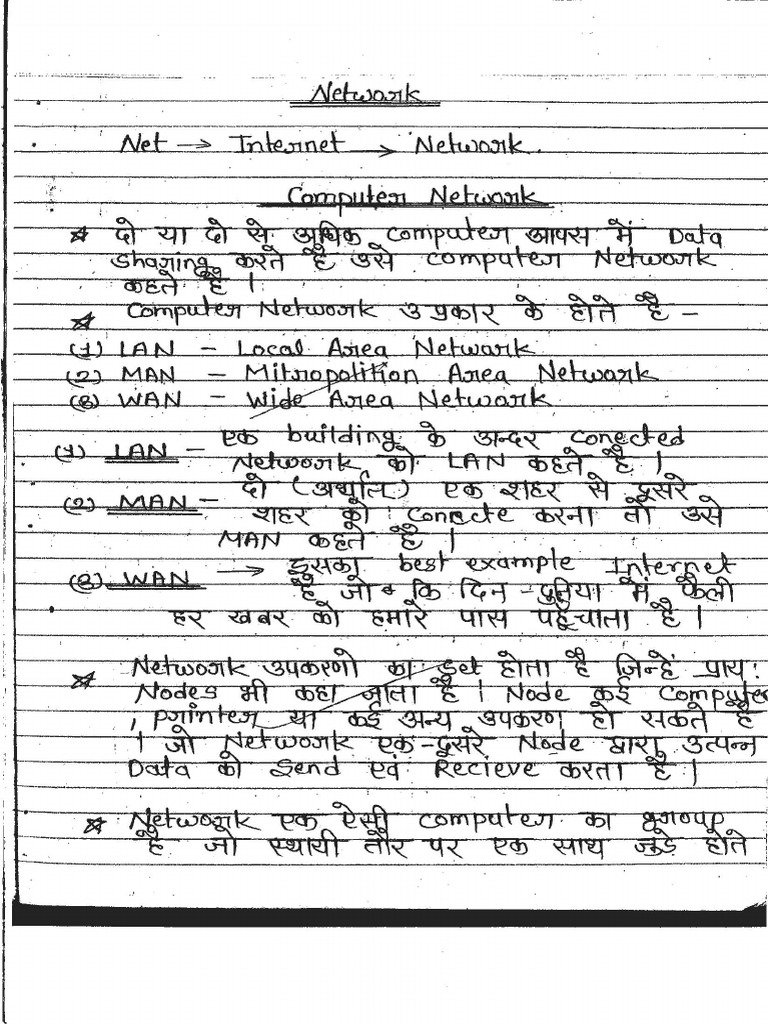 Network
Net → Internet → Network.
Computer Network
☆ दो या दो से अधिक computer आपस में Data
sharing करते है उसे computer Network
कहते है ।
☆ Computer Network ३ प्रकार के होते है -
(1) LAN - Local Area Network
(2) MAN - Mitropolition Area Network
(3) WAN - Wide Area Network
(1) LAN - एक building के अन्दर conected
Network को LAN कहते है ।
(2) MAN - दो (अर्थात) एक शहर से दूसरे
शहर को conecte करना तो उसे
MAN कहते है ।
(3) WAN → इसका best example Internet
है जो कि दिन-दुनिया में फैली
हर खबर को हमारे पास पहुँचाता है ।
☆ Network उपकरणो का set होता है जिन्हें प्राय:
Nodes भी कहा जाता है । Node कई Computer
, printer या कई अन्य उपकरण हो सकते है
। जो Network एक-दूसरे Node द्वारा उत्पन्न
Data को Send एवं Recieve करता है ।
☆ Network एक ऐसी computer का group
है जो स्थायी तौर पर एक साथ जुड़े होते